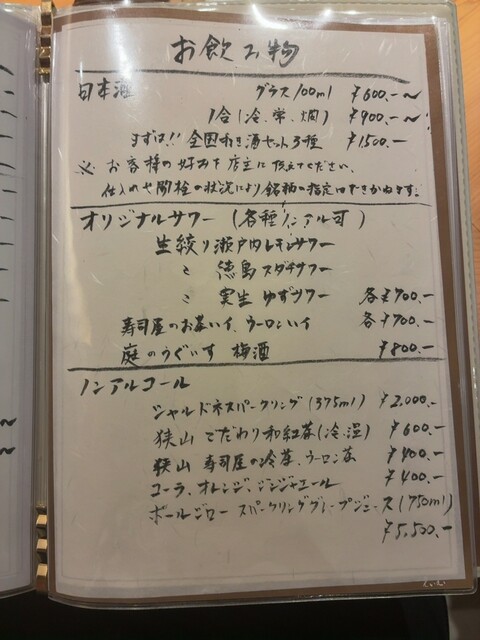 お飲み物
日本酒 グラス100ml ¥600.-～
1合(冷、常、燗) ¥900.-～
まずは!! 全国利き酒セット3種 ¥1500.-
※ お客様の好みを店主に伝えてください。
仕入れや開栓の状況により銘柄の指定はできかねます。
オリジナルサワー (各種ノンアル可)
生絞り瀬戸内レモンサワー
〃 徳島スダチサワー
〃 実生ゆずサワー 各¥700.-
寿司屋のお茶ハイ、ウーロンハイ 各¥700.-
庭のうぐいす 梅酒 ¥800.-
ノンアルコール
シャルドネスパークリング(375ml) ¥2,000.-
狭山 こだわり和紅茶(冷、温) ¥600.-
狭山 寿司屋の冷茶、ウーロン茶 ¥400.-
コーラ、オレンジ、ジンジャエール ¥400.-
ポールジロー スパークリンググレープジュース(750ml)
¥5,500.-